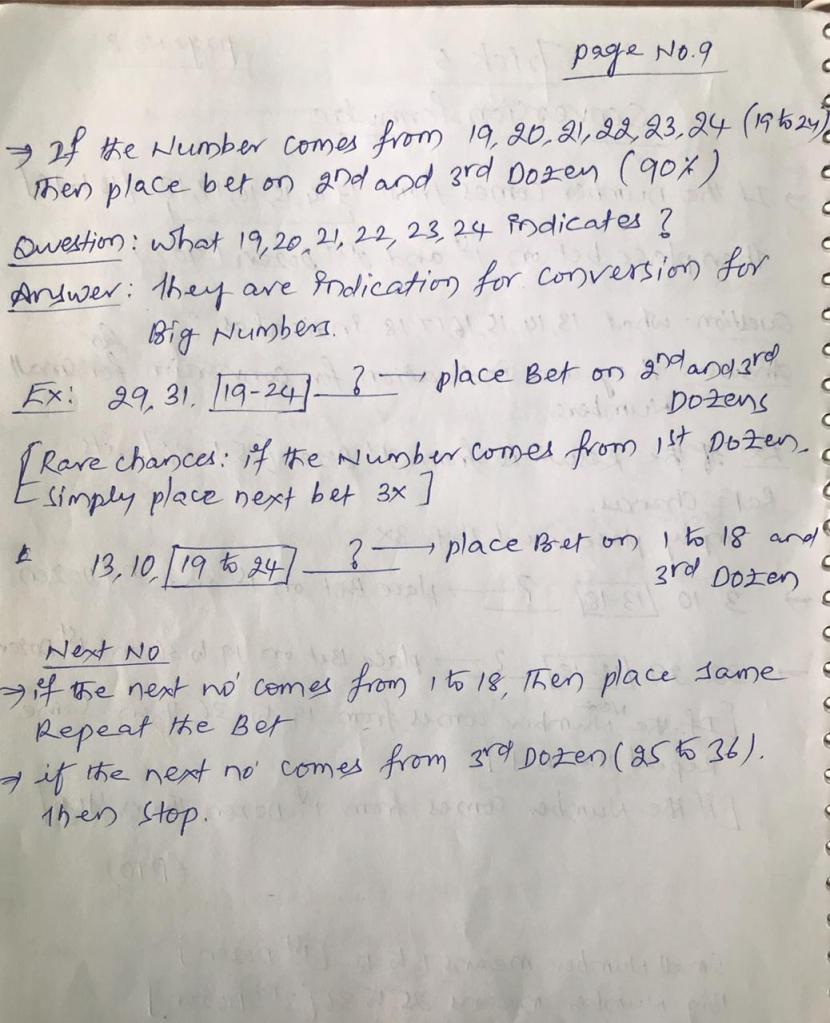 Page No.9
→ If the Number comes from 19, 20, 21, 22, 23, 24 (19 to 24)
Then place bet on 2nd and 3rd Dozen (90%)
Question: what 19, 20, 21, 22, 23, 24 indicates ?
Answer: They are indication for conversion for
Big Numbers.
Ex: 29, 31, [19-24] ? → place Bet on 2nd and 3rd
Dozens
[Rare chances: if the Number comes from 1st Dozen.
simply place next bet 3x]
13, 10, [19 to 24] ? → place Bet on 1 to 18 and
3rd Dozen
Next No
→ if the next no' comes from 1 to 18, Then place same
Repeat the Bet
→ if the next no' comes from 3rd Dozen (25 to 36).
then stop.